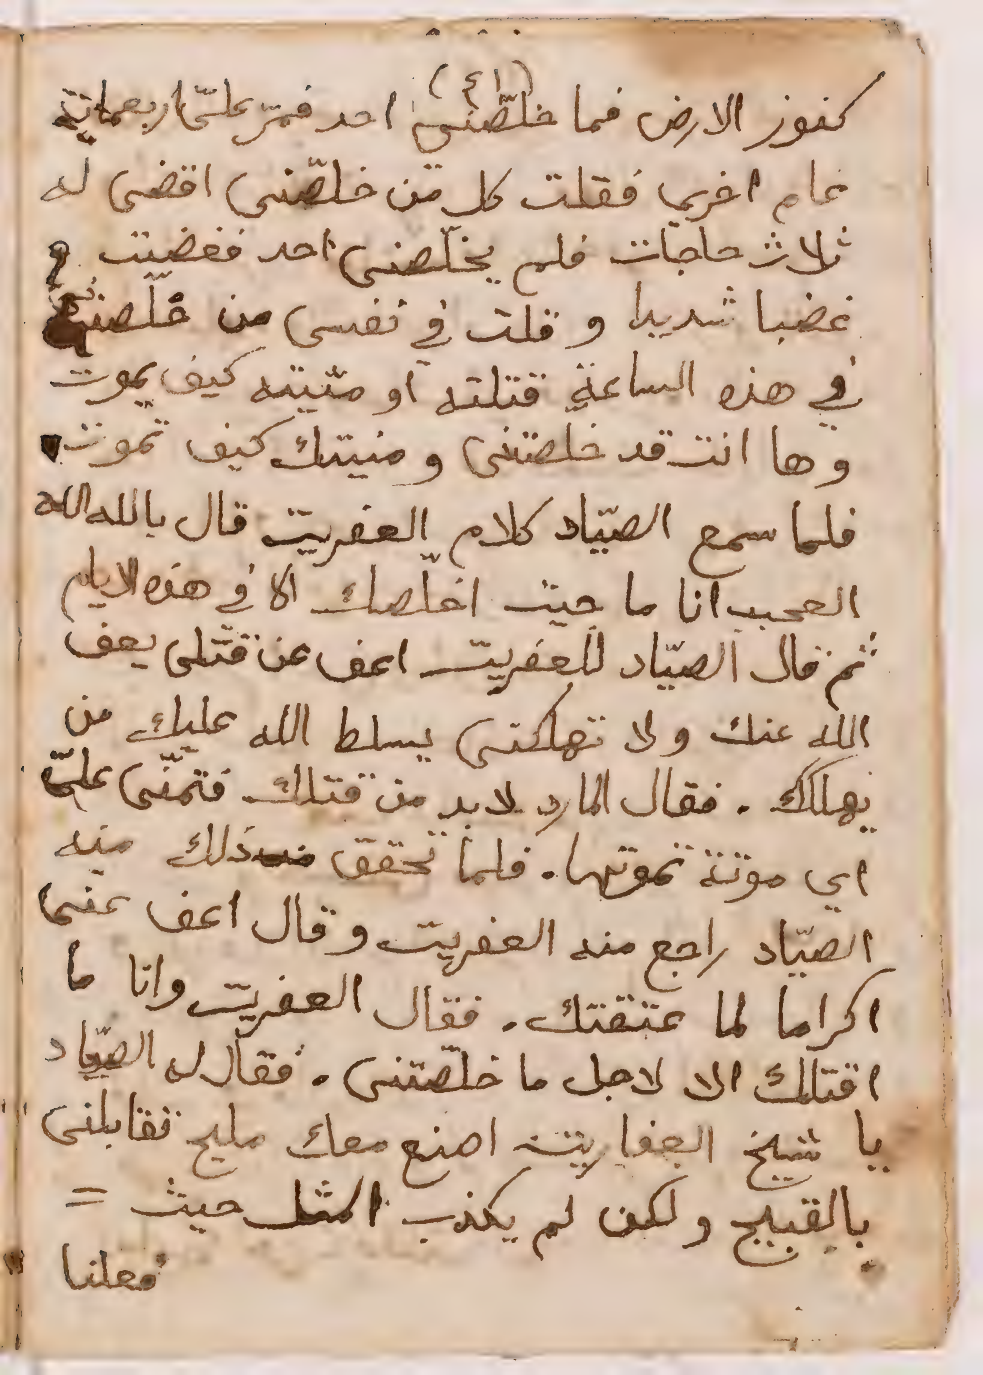 (٤١)
كنوز الارض فما خلّصني احد فمرّ عليّ اربعماية
عام اخرى فقلت كل من خلّصني اقضي له
ثلاث حاجات فلم يخلّصني احد فغضبت
غضبا شديدا و قلت في نفسي من خلّصني
في هذه الساعة قتلته او منيته كيف يموت
وها انت قد خلصتني و منيتك كيف تموت
فلما سمع الصيّاد كلام العفريت قال بالله الله
العجب انا ما جيت اخلّصك الا في هذه الايام
ثم قال الصيّاد للعفريت اعف عن قتلي يعف
الله عنك ولا تهلكني يسلط الله عليك من
يهلكك . فقال المارد لابد من قتلك فتمنّى عليّ
اي موتة تموتها . فلما تحقق ذلك منه
الصيّاد راجع منه العفريت وقال اعف عني
اكراما لما عتقتك . فقال العفريت وانا ما
اقتلك الا لاجل ما خلّصتني . فقال له الصيّاد
يا شيخ العفاريت اصنع معك مليح تقابلني
بالقبيح ولكن لم يكذب المثل حيث =
فعلنا